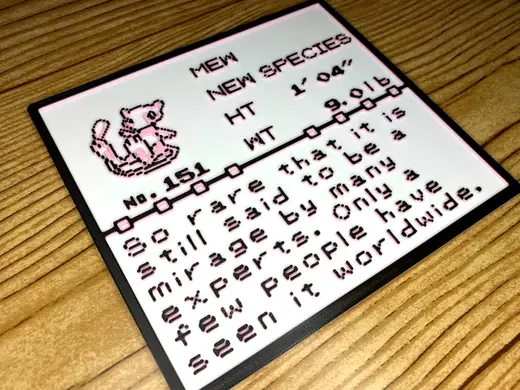 MEW
NEW SPECIES
HT 1'04"
WT 9.0lb
No.151
So rare that it is
still said to be a
mirage by many
experts. Only a
few people have
seen it worldwide.